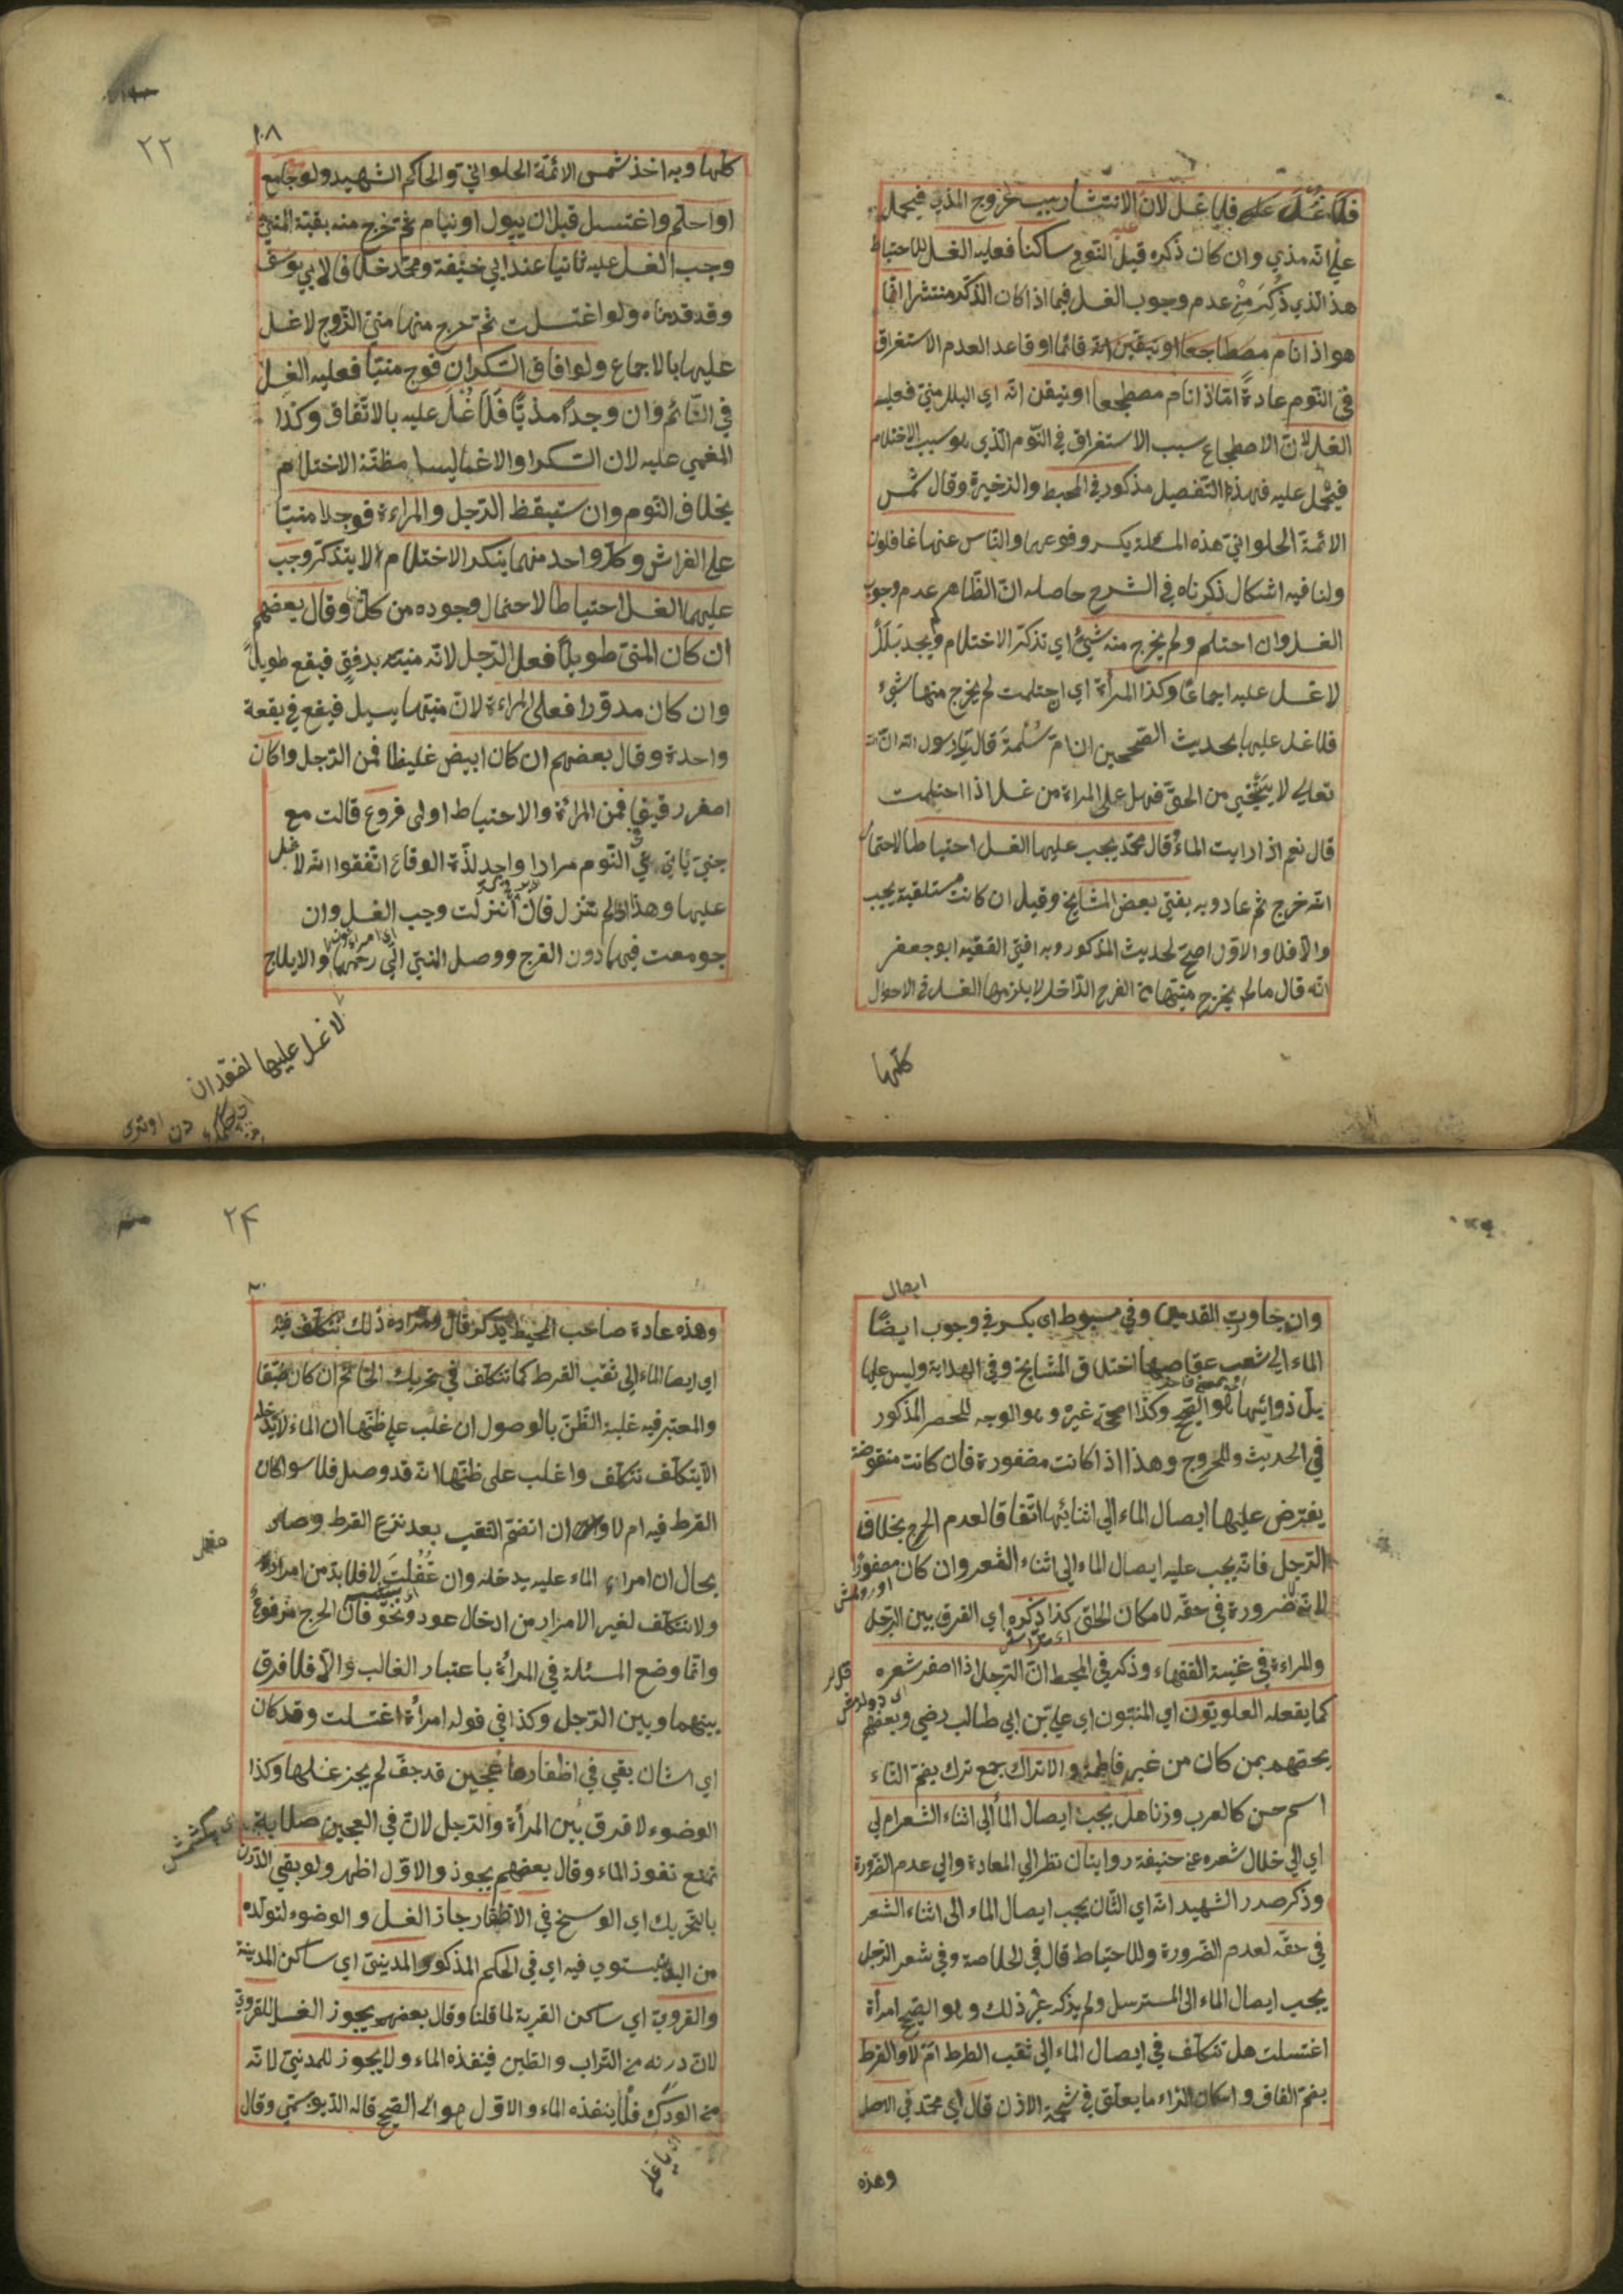 فلا غسل عليه فلا غسل لان الانتشار سبب لخروج المذي فيحمل
على انه مذي وان كان ذكره قبل النوم ساكنا فعليه الغسل للاحتياط
هذا الذي ذكر من عدم وجوب الغسل فيما اذا كان الذكر منتشرا انما
هو اذا نام قائما او قاعدا لعدم الاستغراق
في النوم عادة اما اذا نام مضطجعا او تيقن انه اي البلل مني فعليه
الغسل لان الاضطجاع سبب الاستغراق في النوم الذي هو سبب الاحتلام
فيحمل عليه فهذا التفصيل مذكور في المحيط والذخيرة وقال شمس
الائمة الحلواني هذه المسئلة يكسر وقوعها والناس عنها غافلون
ولنا فيه اشكال ذكرناه في الشرح حاصله ان الظاهر عدم وجوب
الغسل وان احتلم ولم يخرج منه شيئ اي تذكر الاحتلام ولم يجد بللا
لا غسل عليه اجماعا وكذا المرأة اي احتلمت لم يخرج منها شيء
فلا غسل عليها بحديث الصحيحين ان ام سلمة قال يا رسول الله ان الله
تعالى لا يستحيي من الحق فهل على المراة من غسل اذا احتلمت
قال نعم اذا رايت الماء قال محمد يجب عليها الغسل احتياطا لاحتمال
انه خرج ثم عاد وبه يفتي بعض المشايخ وقيل ان كانت مستلقية يجب
والا فلا والاول اصح لحديث المذكور وبه افتى الفقيه ابو جعفر
انه قال ما لم يخرج منيتها من الفرج الداخل لا يلزمها الغسل في الاحوال
كلها
١٠٨
٢٢
كلها وبه اخذ شمس الائمة الحلواني والحاكم الشهيد ولو جامع
او احتلم واغتسل قبل ان يبول او ينام ثم خرج منه بقية المني
وجب الغسل عليه ثانيا عند ابي حنيفة ومحمد خلافا لابي يوسف
وقد قدمناه ولو اغتسلت ثم خرج منها مني الزوج لا غسل
عليها بالاجماع ولو افاق السكران فوجد منيا فعليه الغسل
في النائم وان وجد مذيا فلا غسل عليه بالاتفاق وكذا
المغمي عليه لان السكر والاغما ليسا مظنة الاحتلام
بخلاف النوم وان ستيقظ الرجل والمراءة فوجدا منيا
على الفراش وكل واحد منهما ينكر الاحتلام لا يتذكر وجب
عليهما الغسل احتياطا لاحتمال وجوده من كل وقال بعضهم
ان كان المني طويلا فعلى الرجل لانه منيه بدفق فيقع طويلا
وان كان مدورا فعلى المراءة لان منيها يسيل فيقع في بقعة
واحدة وقال بعضهم ان كان ابيض غليظا فمن الرجل وا كان
اصفر رقيقا فمن المرأة والاحتياط اولى فروع قالت مع
جني ياتي في النوم مرارا واجد لذة الوقاع اتفقوا انه لا غسل
عليها وهذا اذا لم تنزل فان انزلت وجب الغسل وان
جومعت فيما دون الفرج ووصل المني الى رحمها والايلاج
لا غسل عليها لفقدان
ايصال
وان جاوزت القدمين وفي مبسوط ابي بكر في وجوب ايضا
الماء الى شعب عقاصها اختلاف المشايخ وفي الهداية وليس عليها
بل ذوائبها هو الصحيح وكذا صححه غيره وهو الوجه للحصر المذكور
في الحديث وللحروج وهذا اذا كانت مضفورة فان كانت منقوضة
يفترض عليها ايصال الماء الى اثنائها اتفاقا لعدم الحرج بخلاف
الرجل فانه يجب عليه ايصال الماء الى اثناء الشعر وان كان مضفورا
لانه لا ضرورة في حقه لامكان الحلق كذا ذكره اي الفرق بين الرجل
والمراءة في غنية الفقهاء وذكر في المحيط ان الرجل اذا اضفر شعره
كما يفعله العلويون اي المنسبون اي علي بن ابي طالب رضي وبعضهم
يخصهم بمن كان من غير فاطمة والاتراك جمع ترك بضم التاء
اسم جنس كالعرب وزنا هل يجب ايصال الماء الى اثناء الشعر ام لي
اي الي خلال شعره عن حنيفة روايتان نظر الي المعادة والي عدم الضرورة
وذكر صدر الشهيد انه اي الثان يجب ايصال الماء الى اثناء الشعر
في حقه لعدم الضرورة وللاحتياط قال في الخلاصة وفي شعر الرجل
يجب ايصال الماء الى المسترسل ولم يذكر غير ذلك وهو الصحيح امرأة
اغتسلت هل تتكلف في ايصال الماء الى ثقب القرط ام لا والقرط
بضم القاف واسكان الراء ما يعلق في شحمة الاذن قال اي محمد في الاصل
وهذه
٢٤
وهذه عادة صاحب المحيط يذكر قال ومراده ذلك تتكلف فيه
اي ايصا الماء الى ثقب القرط كما تتكلف في تحريك الخاتم ان كان ضيقا
والمعتبر فيه غلبة الظن بالوصول ان غلب على ظنها ان الماء لا يدخله
الا بتكلف تتكلف وا غلب على ظنها انه قد وصل فلا سوا كان
القرط فيه ام لا وان انضم الثقب بعد نزع القرط وصار
بحال ان امراء الماء عليه يدخله وان غفلت لا فلا بد من امراره
ولا تتكلف لغير الامرار من ادخال عود ونحوه فان الحرج مرفوع
وانما وضع المسئلة في المرأة باعتبار الغالب والا فلا فرق
بينهما وبين الرجل وكذا في قوله امرأة اغتسلت وقد كان
اي الشان بقي في اظفارها عجين قد جف لم يجز غسلها وكذا
الوضوء لا فرق بين المرأة والرجل لان في العجين صلابة
تمنع نفوذ الماء وقال بعضهم يجوز والاول اظهر ولو بقي الدرن
بالتحريك اي الوسخ في الاظفار جاز الغسل والوضوء لتولده
من البدن يستوي فيه اي في الحكم المذكور المديني اي ساكن المدينة
والقروي اي ساكن القرية لما قلنا وقال بعضهم يجوز الغسل للقروي
لان درنه من التراب والطين فينفذه الماء ولا يجوز للمدني لانه
من الودك فلا ينفذه الماء والاول هو الصحيح قاله الدبوسي وقال